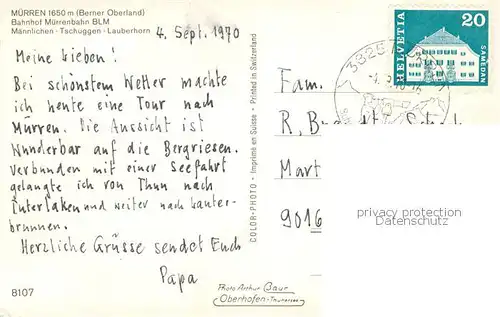 MÜRREN 1650 m (Berner Oberland)
Bahnhof Mürrenbahn BLM
Männlichen - Tschuggen - Lauberhorn
4. Sept. 1970
Meine Lieben!
Bei schönstem Wetter machte
ich heute eine Tour nach
Mürren. Die Aussicht ist
Wunderbar auf die Bergriesen.
Verbunden mit einer Seefahrt
gelangte ich von Thun nach
Interlaken und weiter nach Lauter-
brunnen.
Herzliche Grüsse sendet Euch
Papa
8107
COLOR-PHOTO - Imprimé en Suisse - Printed in Switzerland
Photo Arthur Baur
Oberhofen-Thunersee
3825
HELVETIA
20
SAMEDAN
Fam.
R.
Mart
9016
privacy protection
watermark